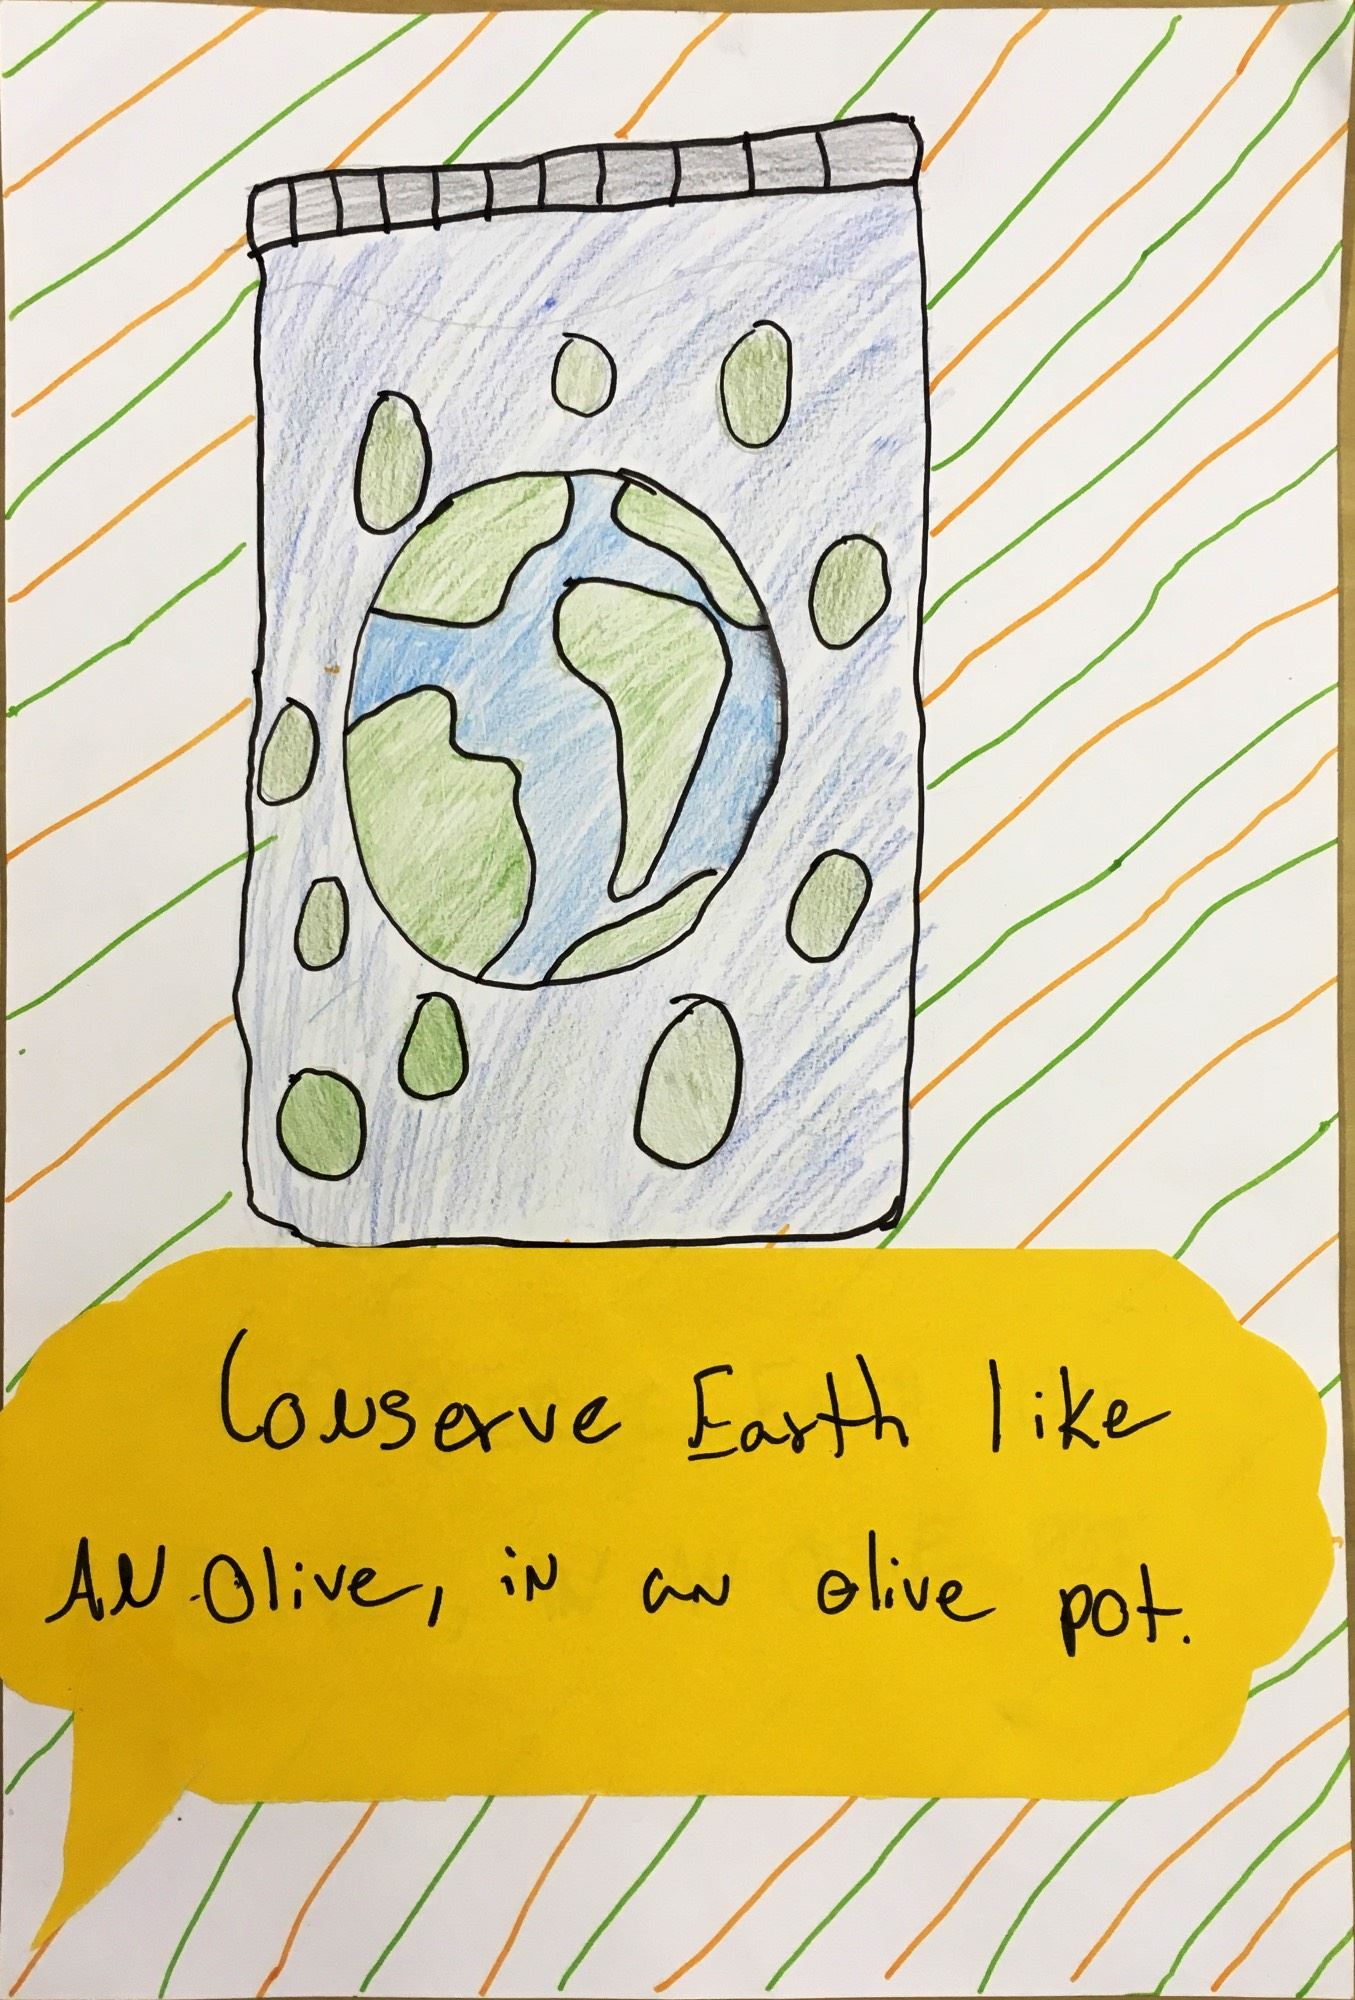 Conserve Earth like
AN Olive, in an olive pot.